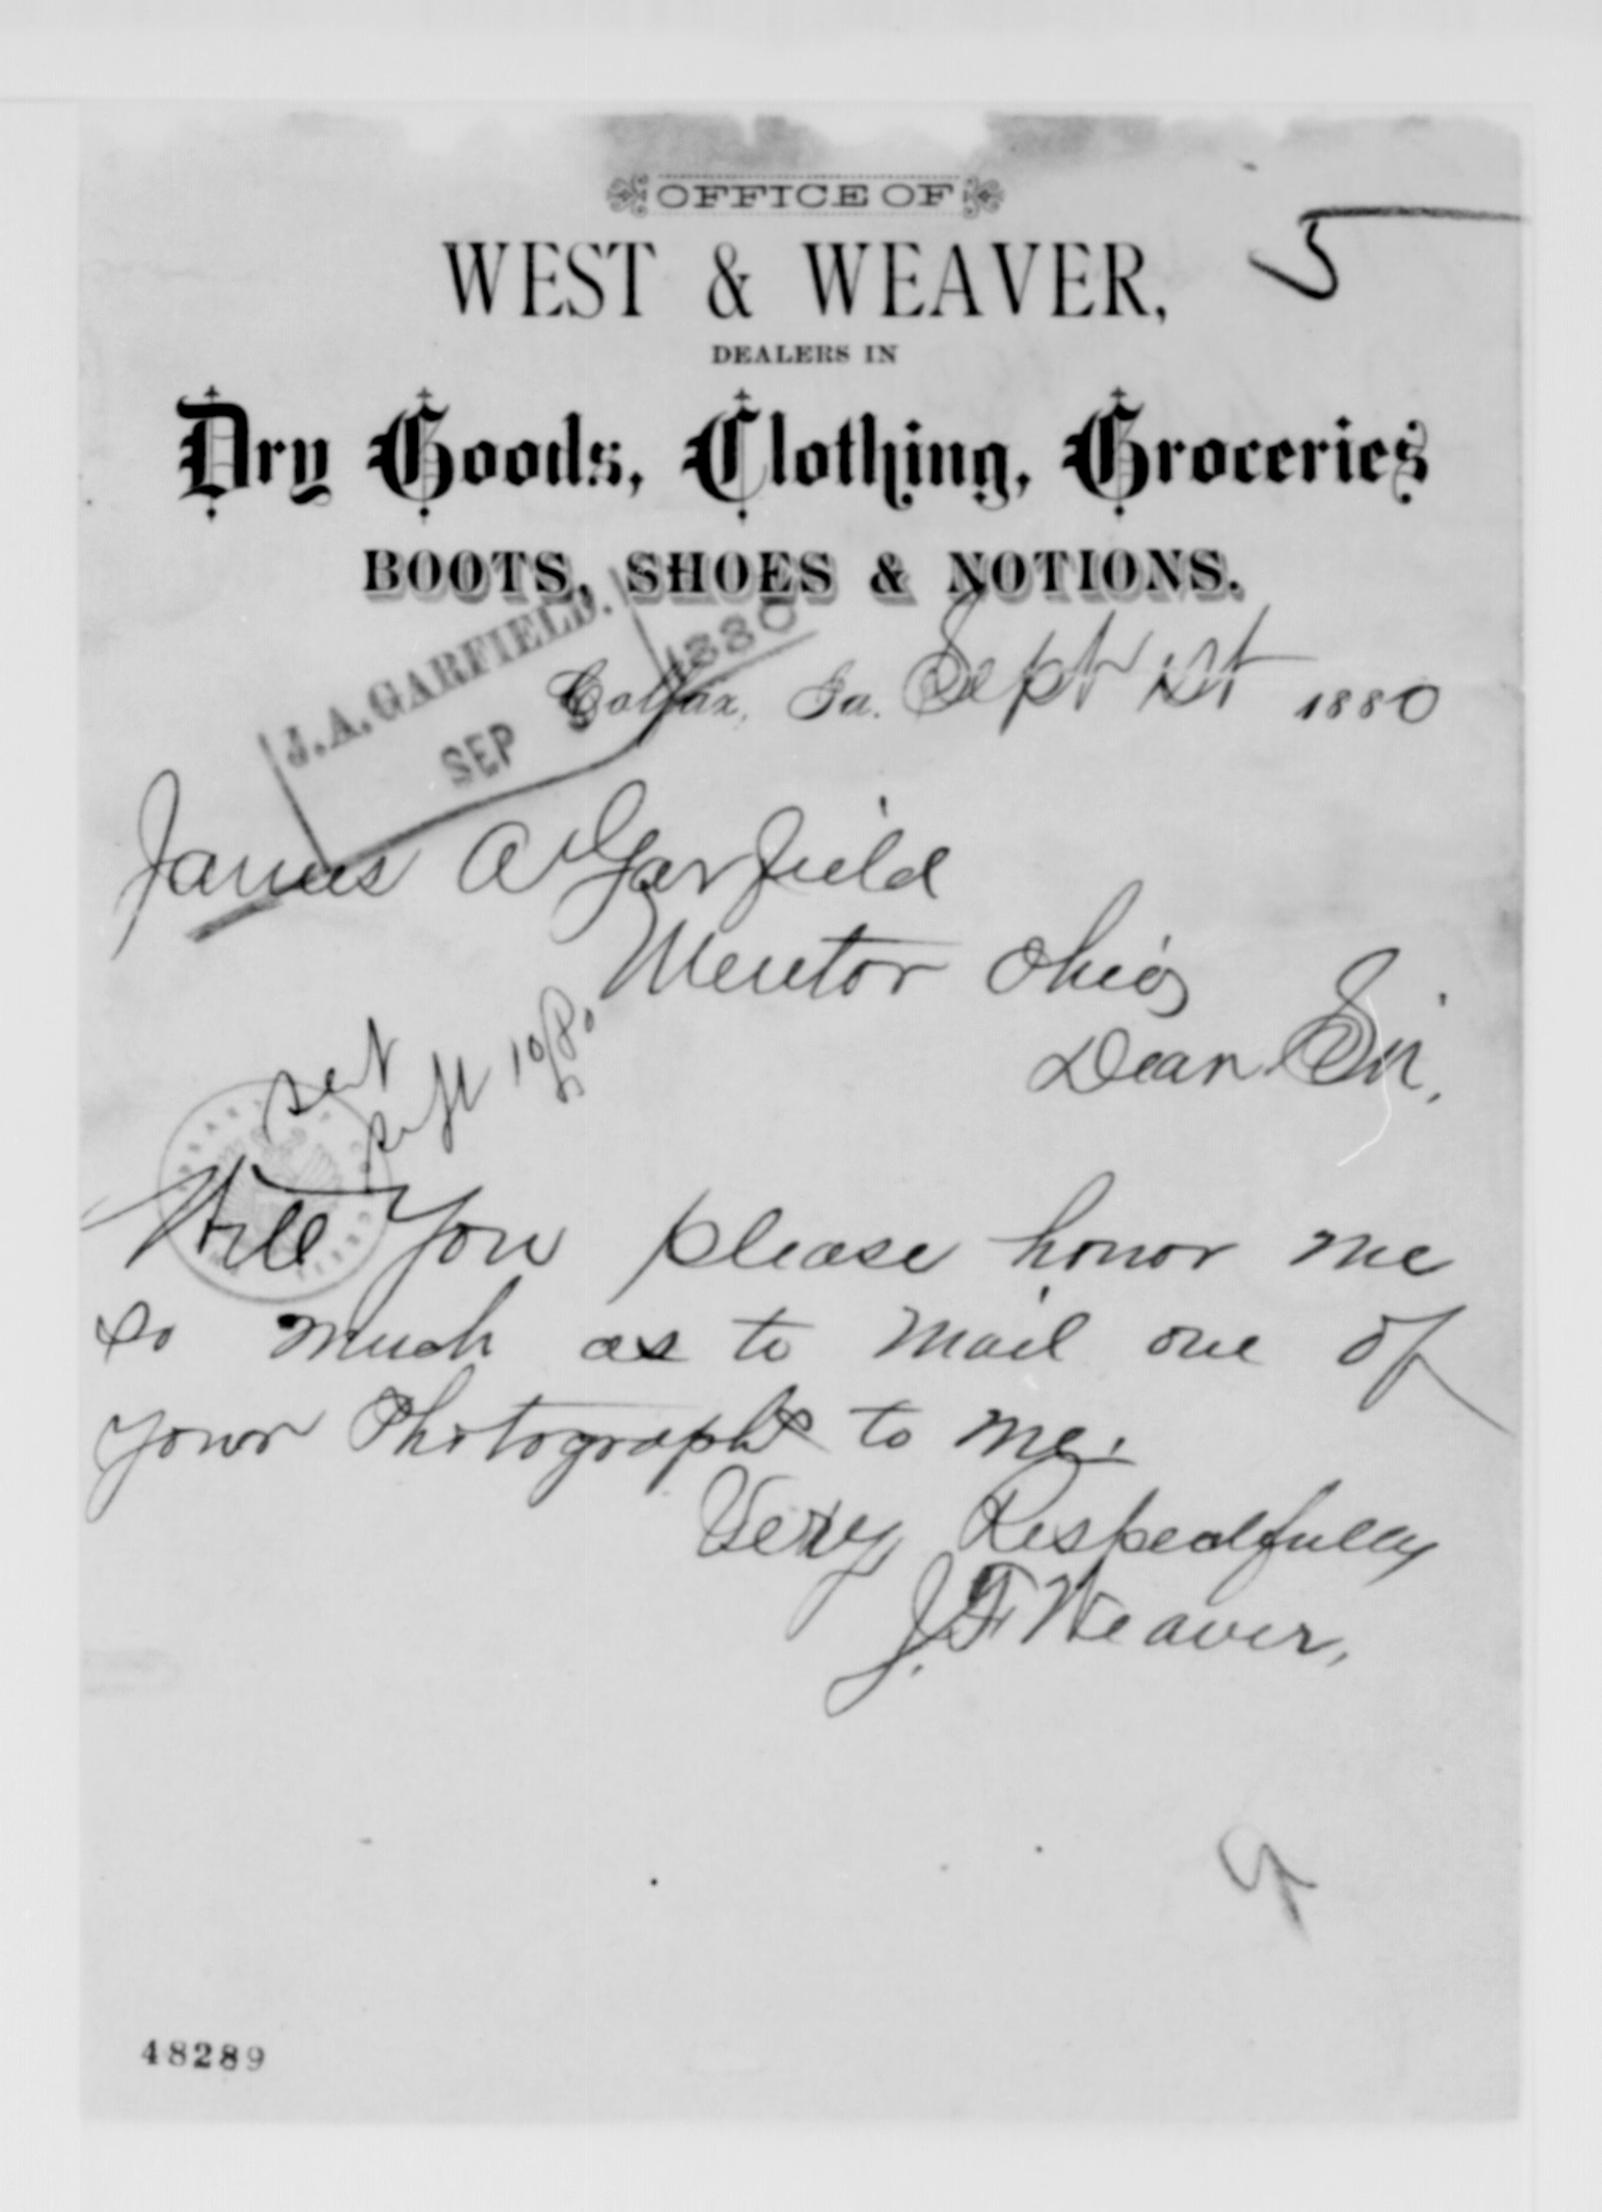 OFFICE OF
WEST & WEAVER,
DEALERS IN
Dry Goods, Clothing, Groceries
BOOTS, SHOES & NOTIONS.
5
J. A. GARFIELD.
SEP 1880
Colfax, Ia. Sept 1st 1880
James A Garfield
Mentor Ohio
Dear Sir,
Sept 10/80
Will you please honor me
so much as to mail one of
your Photographs to me.
Very Respectfully
J. F. Weaver,
48289